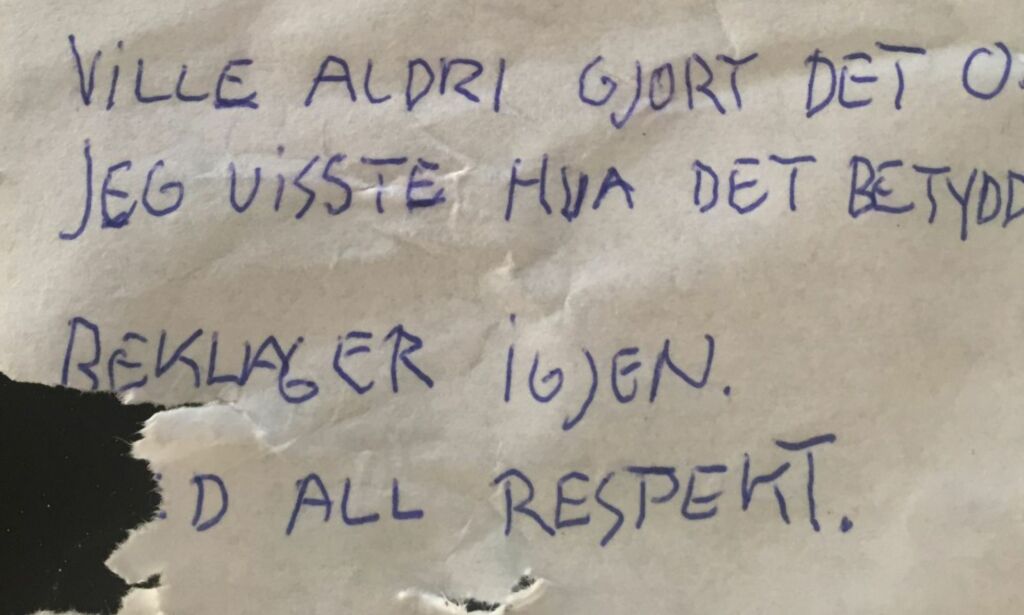 VILLE ALDRI GJORT DET
JEG VISSTE HVA DET
BEKLAGER IGJEN.
ALL RESPEKT.